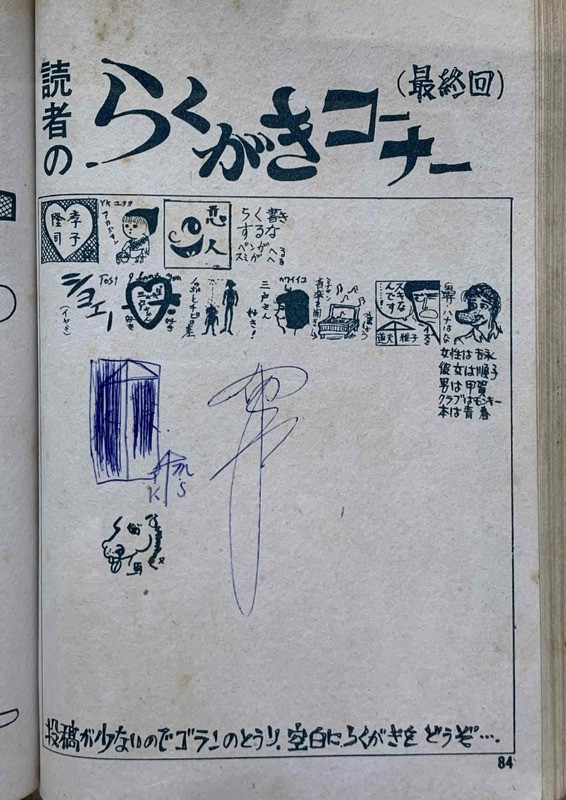 読者の
らくがきコーナー
(最終回)
隆司
孝子
恋人
らく書き
するな
ペンがへる
スミがへる
シェー
(イヤミ)
カワイイコ
三戸さん
好き?
スキな
んです
道夫
雅子
女性は吉永
彼女は順子
男は甲賀
クラブはモンキー
本は青春
K
S
投稿が少ないのでゴランのとうり、空白にらくがきをどうぞ…。
84